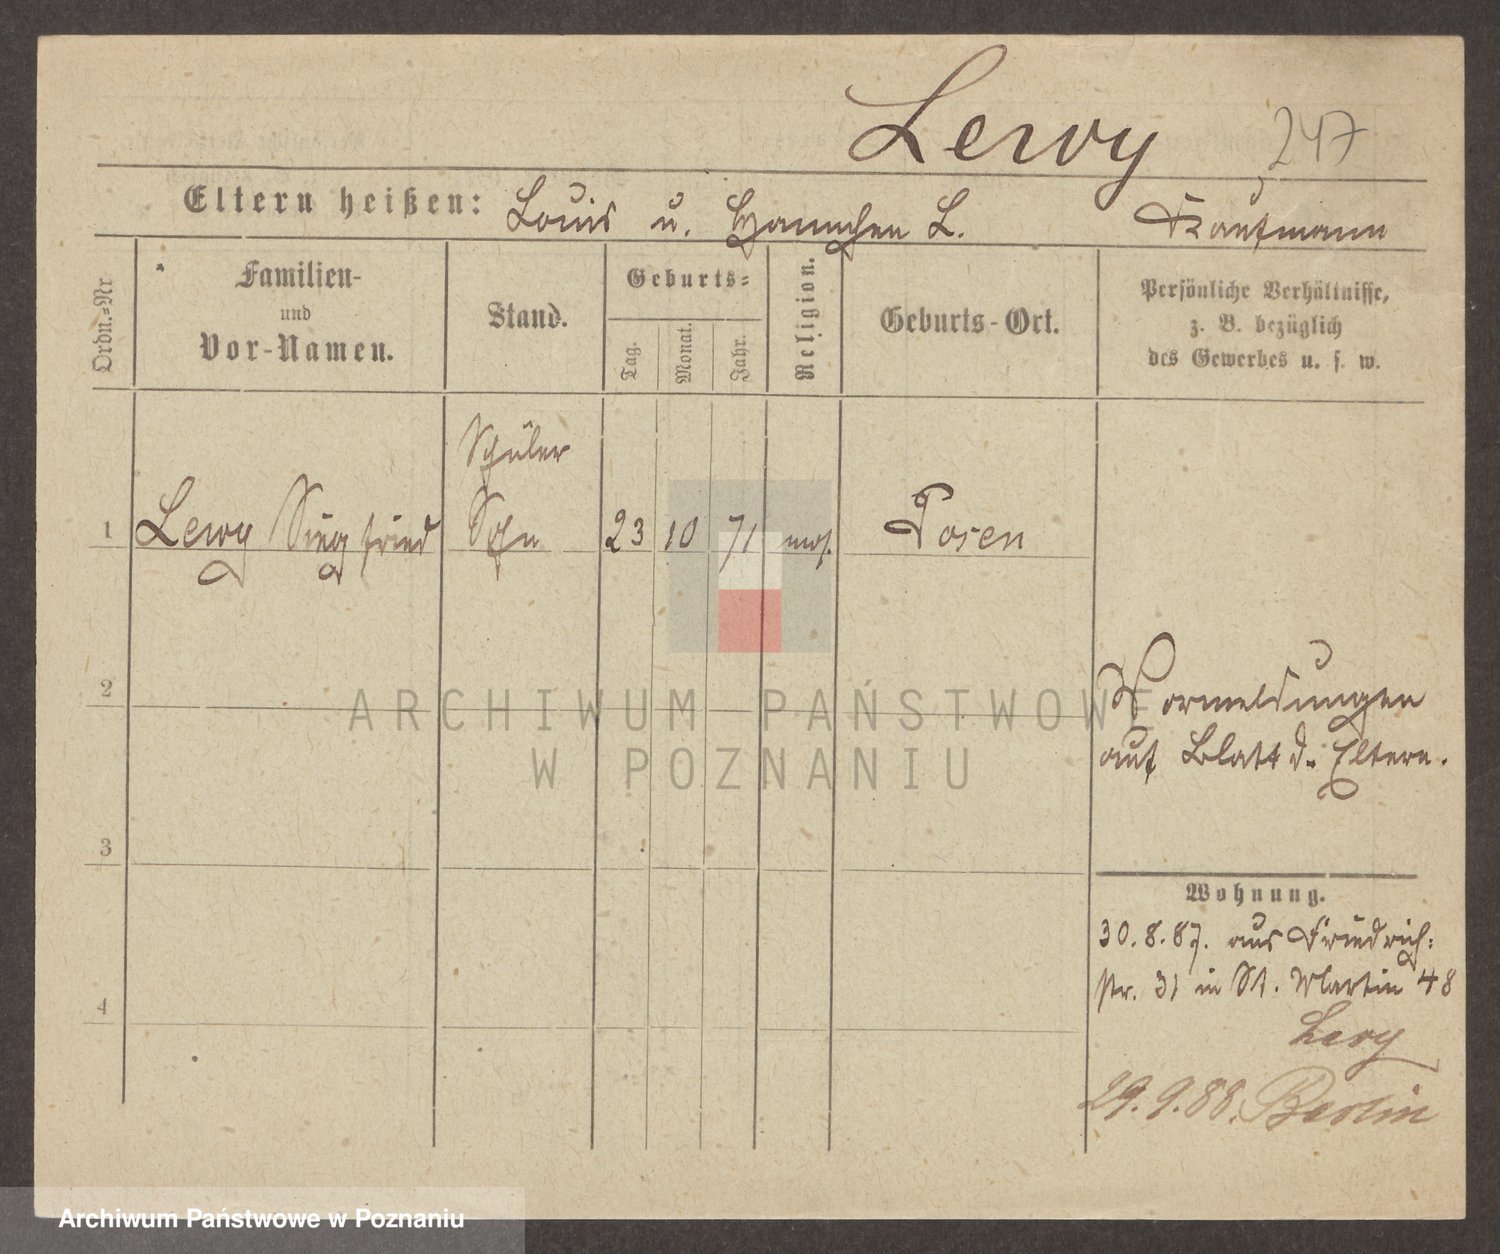 Lewy 247
Eltern heißen: Louis u. Hannchen L. Kaufmann
Ordn.=Nr
Familien-
und
Vor-Namen.
Stand.
Geburts=
Tag.
Monat.
Jahr.
Religion.
Geburts-Ort.
Persönliche Verhältnisse,
z. B. bezüglich
des Gewerbes u. s. w.
Schüler
1 Lewy Siegfried Sohn 23 10 71 mos. Posen
2
Vormeldungen
auf Blatt d. Eltern.
3
Wohnung.
30.8.87. aus Friedrich:
str. 31 in St. Martin 48
4
Lewy
29.9.88. Berlin
ARCHIWUM PAŃSTWOWE
W POZNANIU
Archiwum Państwowe w Poznaniu